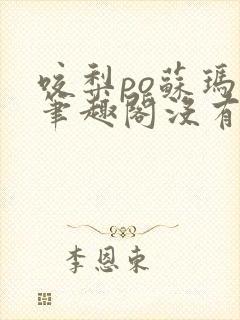 咬梨po蘇瑪
筆趣閣沒有
李恩東